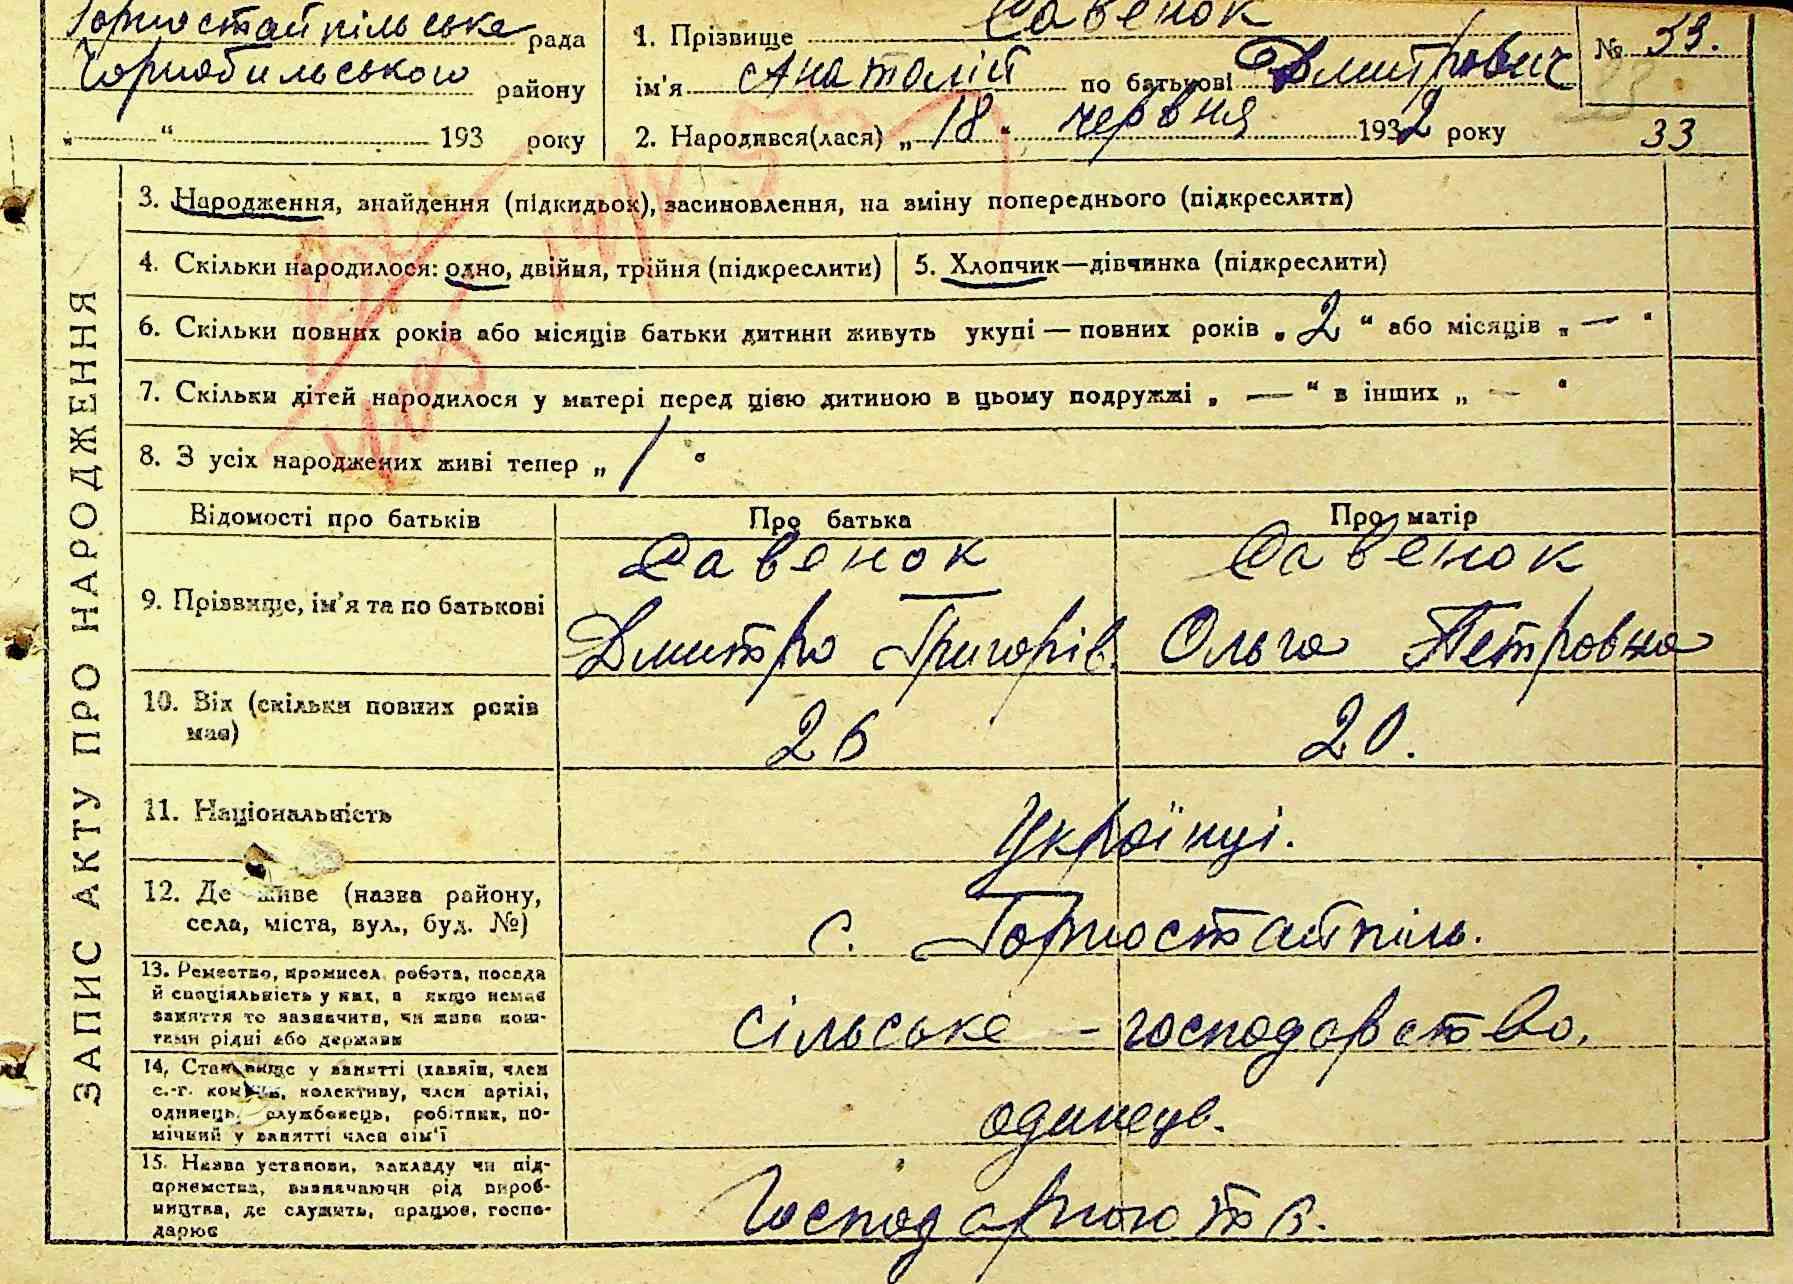 Горностайпільська рада
Чорнобильського району
„ “ 193 року
1. Прізвище Савенок
ім'я Анатолій по батькові Дмитрович
2. Народився(лася) „ 18 “ червня 1932 року
№ 33.
33
ЗАПИС АКТУ ПРО НАРОДЖЕННЯ
3. Народження, знайдення (підкидьок), засиновлення, на зміну попереднього (підкреслити)
4. Скільки народилося: одно, двійня, трійня (підкреслити)
5. Хлопчик—дівчинка (підкреслити)
6. Скільки повних років або місяців батьки дитини живуть укупі — повних років „ 2 “ або місяців „ — “
7. Скільки дітей народилося у матері перед цією дитиною в цьому подружжі „ — “ в інших „ — “
8. З усіх народжених живі тепер „ 1 “
Відомості про батьків Про батька Про матір
9. Прізвище, ім'я та по батькові
Савенок
Дмитро Григорів.
Савенок
Ольга Петровна
10. Вік (скільки повних років
має)
26 20.
11. Національність
Українці.
12. Де живе (назва району,
села, міста, вул., буд. №)
с. Горностайпіль.
13. Ремество, промисел, робота, посада
й спеціяльність у них, а якщо немає
заняття то зазначити, чи живе кош-
тами рідні або держави
сільське - господарство.
14. Становище у занятті (хазяїн, член
с.-г. комуни, колективу, член артілі,
одинець, службовець, робітник, по-
мічний у занятті член сім'ї
одинець.
15. Назва установи, закладу чи під-
приємства, зазначаючи рід вироб-
ництва, де служить, працює, госпо-
дарює